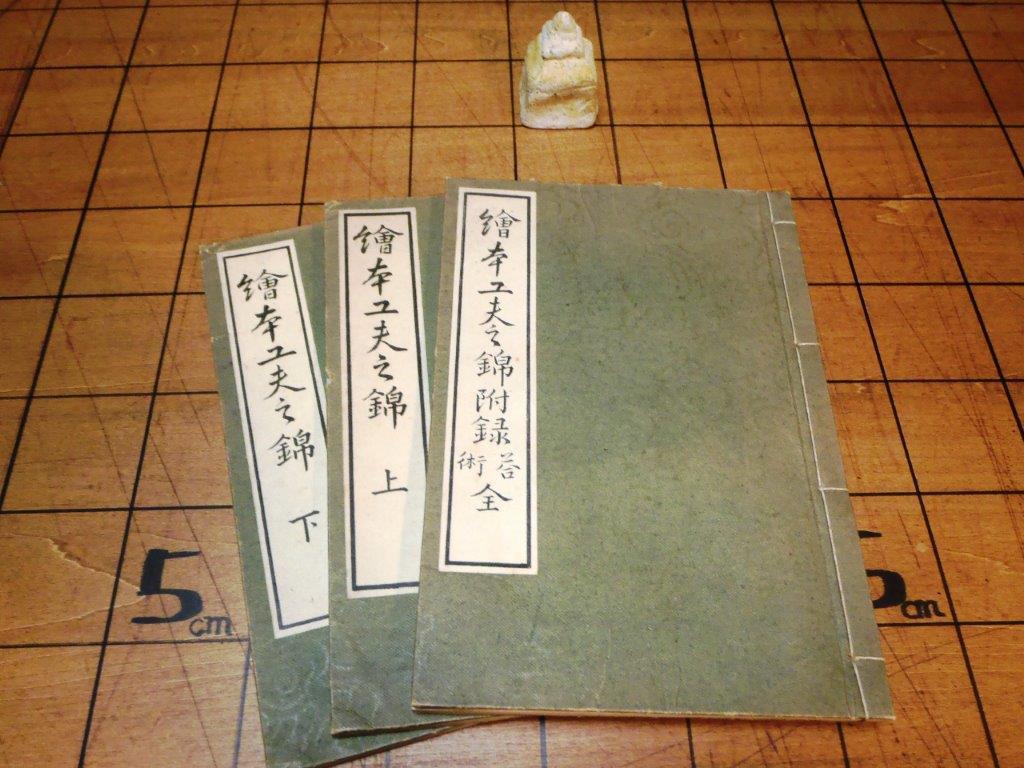 繪本工夫之錦附録荅術全
繪本工夫之錦 上
繪本工夫之錦 下
5cm
5cm